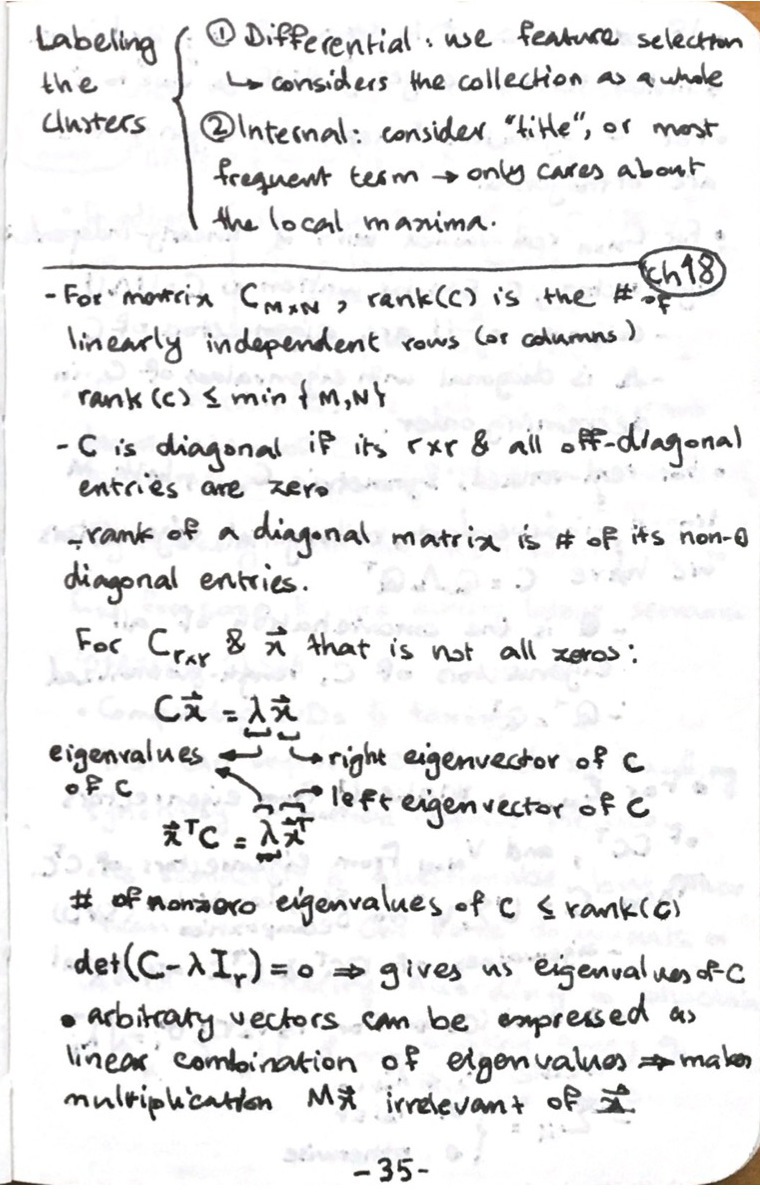 Labeling the clusters
① Differential: use feature selection
↳ considers the collection as a whole
② Internal: consider "title", or most
frequent term → only cares about
the local maxima.
ch18
- For matrix C_{M×N}, rank(C) is the # of
linearly independent rows (or columns)
rank(C) ≤ min{M,N}
- C is diagonal if its r×r & all off-diagonal
entries are zero
- rank of a diagonal matrix is # of its non-0
diagonal entries.
For C_{r×r} & x⃗ that is not all zeros:
Cx⃗ = λx⃗
eigenvalues of C
right eigenvector of C
left eigenvector of C
x⃗ᵀC = λx⃗ᵀ
# of nonzero eigenvalues of C ≤ rank(C)
det(C-λI_r)=0 ⇒ gives us eigenvalues of C
• arbitrary vectors can be expressed as
linear combination of eigenvalues ⇒ makes
multiplication Mx⃗ irrelevant of x⃗
-35-